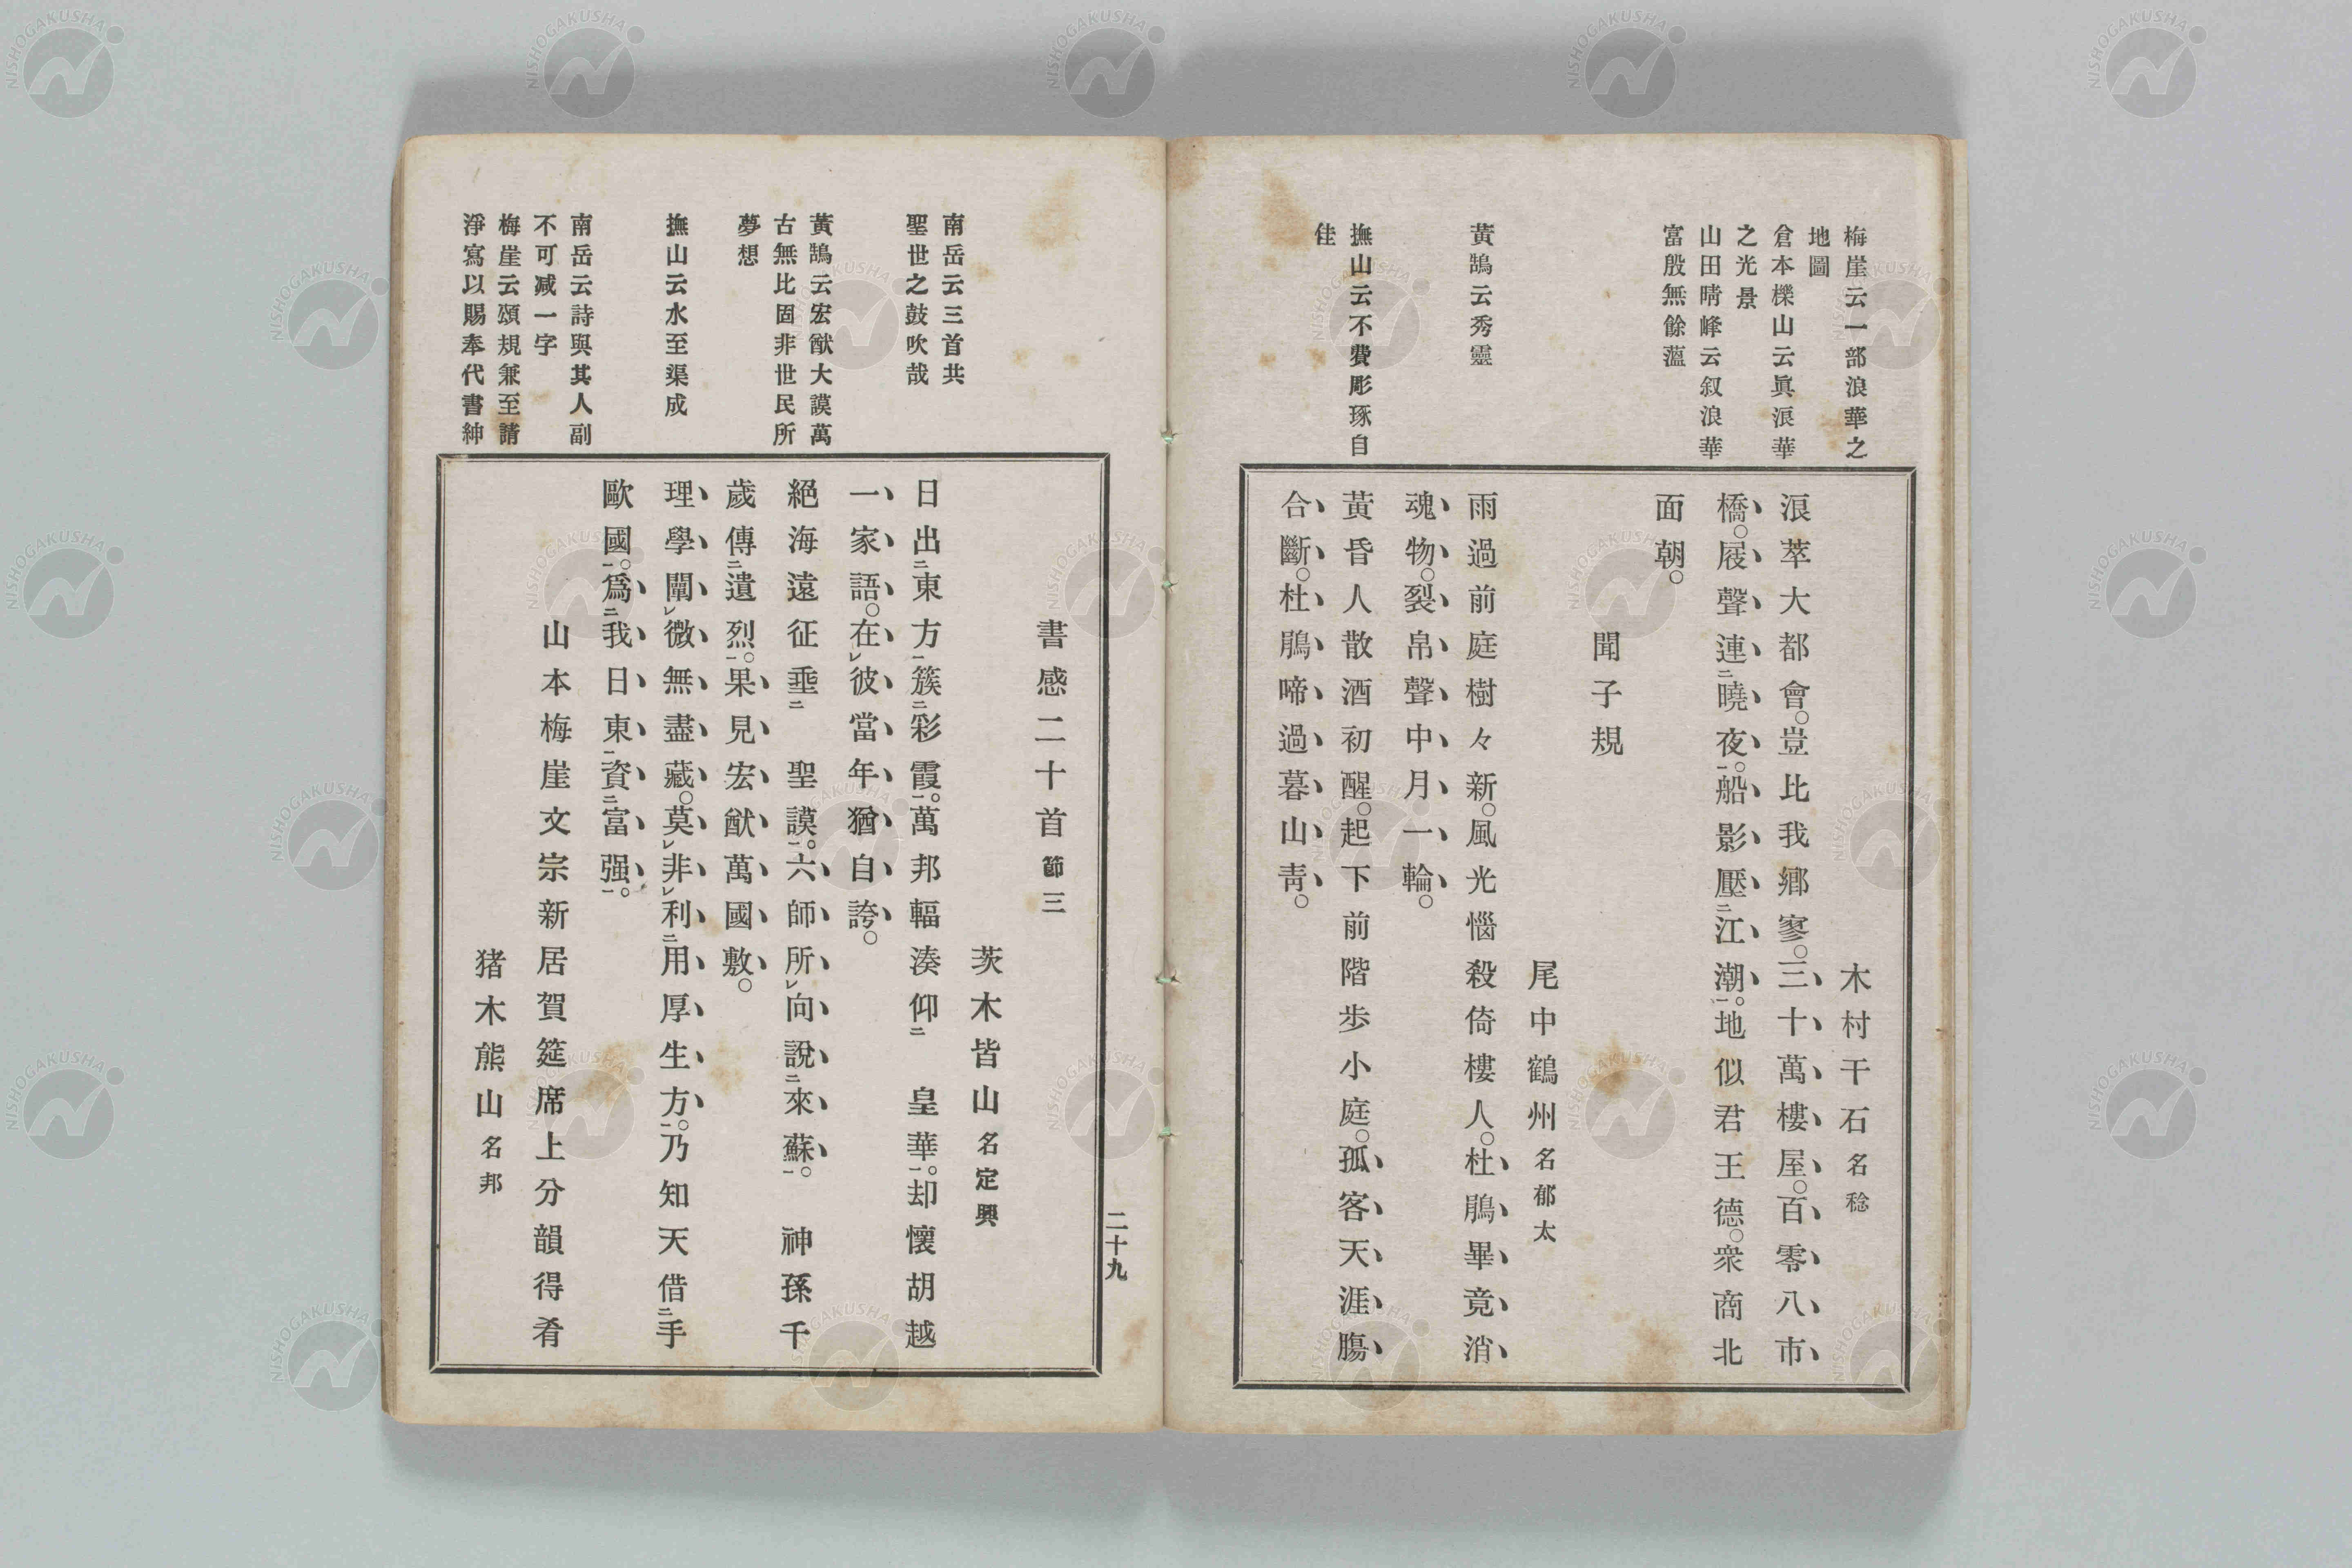 梅崖云一部浪華之
地圖
倉本櫟山云眞浪華
之光景
山田晴峰云叙浪華
富殷無餘薀
黃鵠云秀靈
撫山云不費彫琢自
佳
木村干石名稔
浪苹大都會。豈比我鄉寥。三十萬樓屋。百零八市
橋。屐聲連二曉夜一。船影壓二江潮一。地似君王德。衆商北
面朝。
聞子規
尾中鶴州名郁太
雨過前庭樹々新。風光惱殺倚樓人。杜鵑畢竟消
魂物。裂帛聲中月一輪。
黃昏人散酒初醒。起下前階步小庭。孤客天涯腸
合斷。杜鵑啼過暮山靑。
南岳云三首共
聖世之鼓吹哉
黃鵠云宏猷大謨萬
古無比固非世民所
夢想
撫山云水至渠成
南岳云詩與其人副
不可减一字
梅崖云頌規兼至請
淨寫以賜奉代書紳
二十九
書感二十首節三
茨木皆山名定興
日出二東方一簇二彩霞一。萬邦輻湊仰二 皇華一。却懷胡越
一家語。在レ彼當年猶自誇。
絕海遠征垂二 聖謨一。六師所レ向說二來蘇一。 神孫千
歲傳二遺烈一。果見宏猷萬國敷。
理學闡レ微無盡藏。莫レ非レ利二用厚生方一。乃知天借二手
歐國一。爲二我日東一資二富强一。
山本梅崖文宗新居賀筵席上分韻得肴
猪木熊山名邦